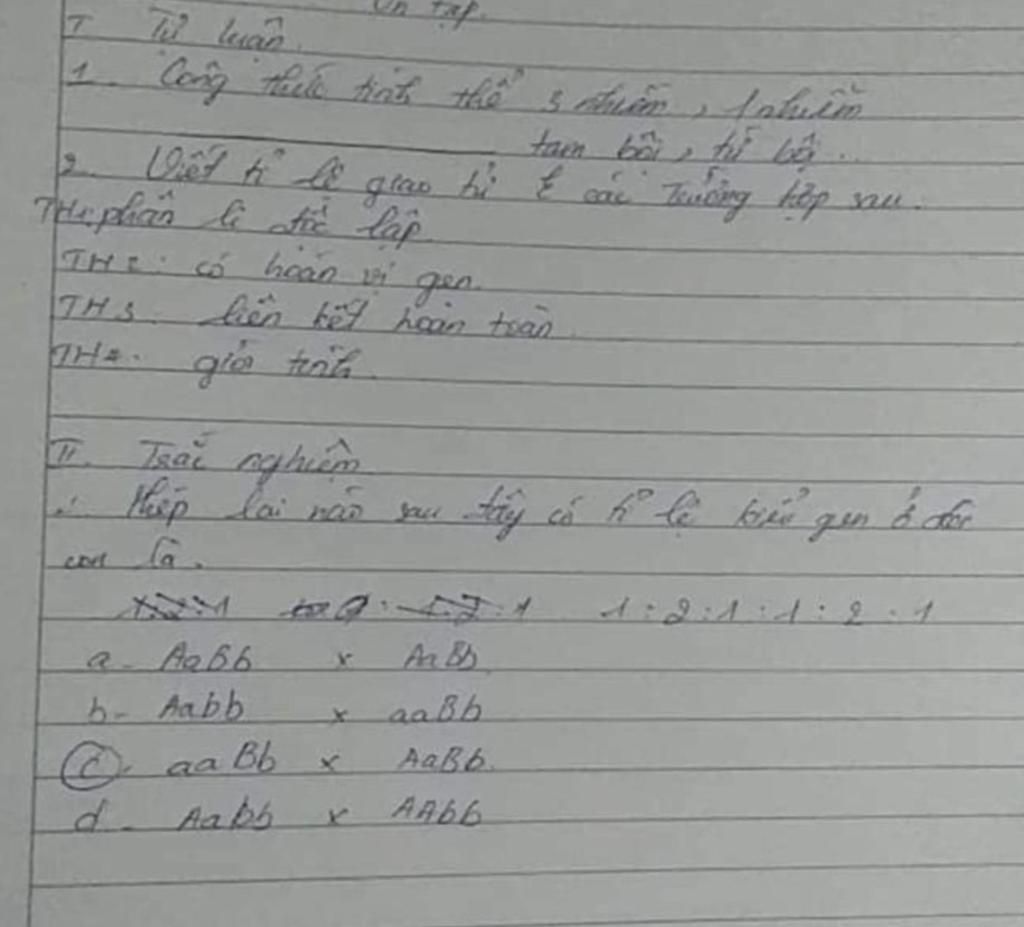 Ôn tập.
I Tự luận.
1. Công thức tính thể 3 nhiễm, 1 nhiễm
tam bội, tứ bội.
2. Viết tỉ lệ giao tử các trường hợp sau.
TH1: phân li độc lập
TH2: có hoán vị gen.
TH3. liên kết hoàn toàn.
giới tính.
II. Trắc nghiệm
Phép lai nào sau đây có tỉ lệ kiểu gen ở đời
con là.
1:2:1:1:2:1
a- AaBb x AaBb
b- Aabb x aaBb
c. aaBb x AaBb.
d- Aabb x AAbb